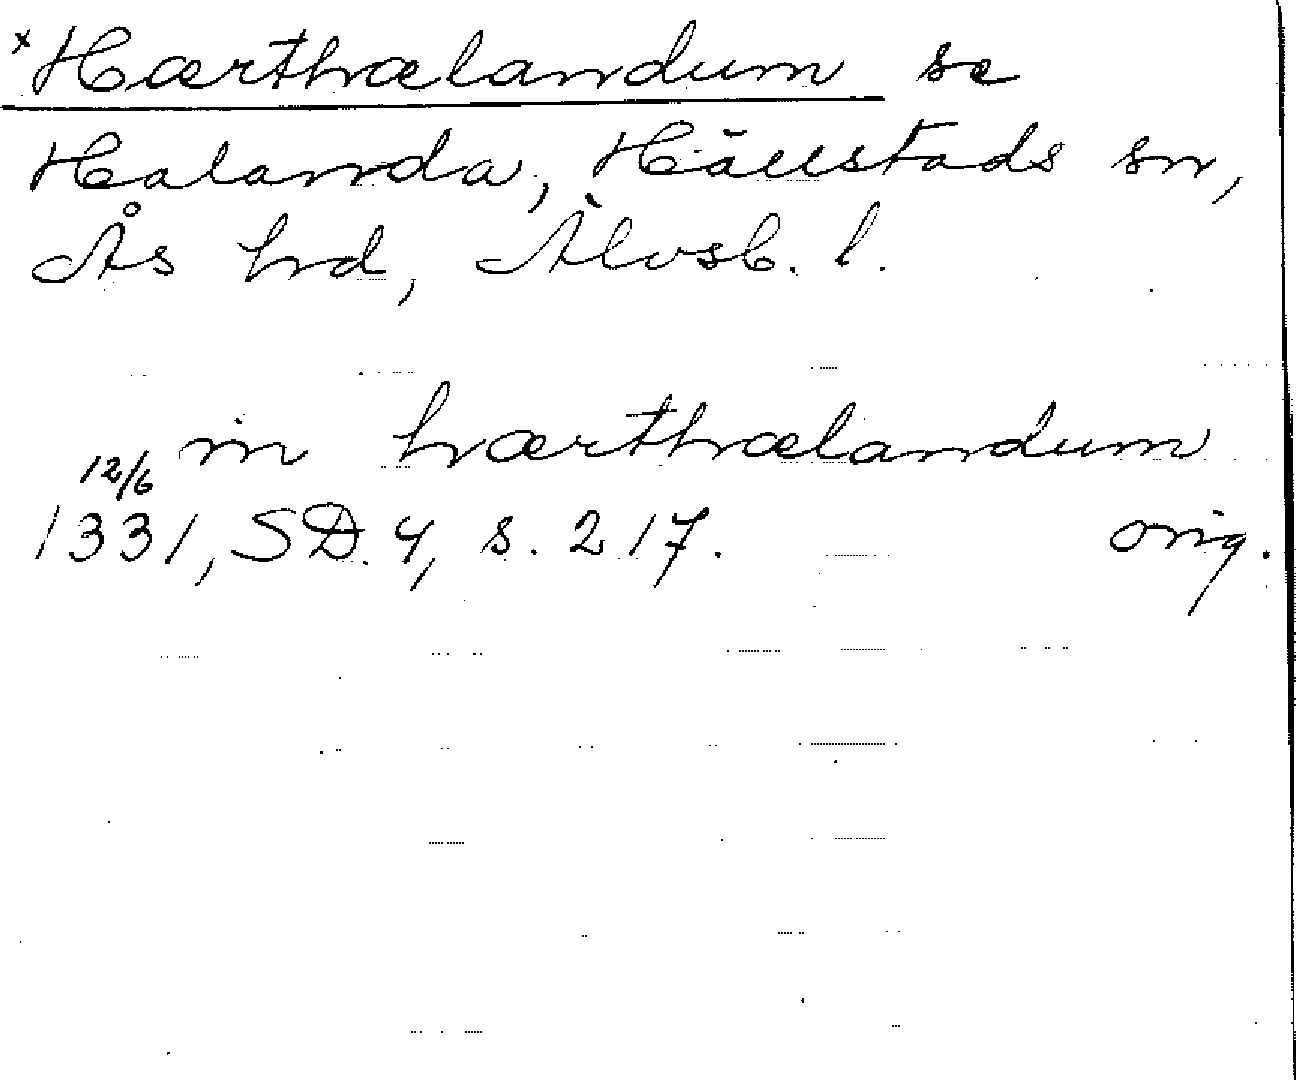 ×Hærthælandum se
Halanda, Hällstads sn,
Ås hd, Älvsb. l.
in hærthælandum
12/6
1331, SD. 4, s. 217. orig.